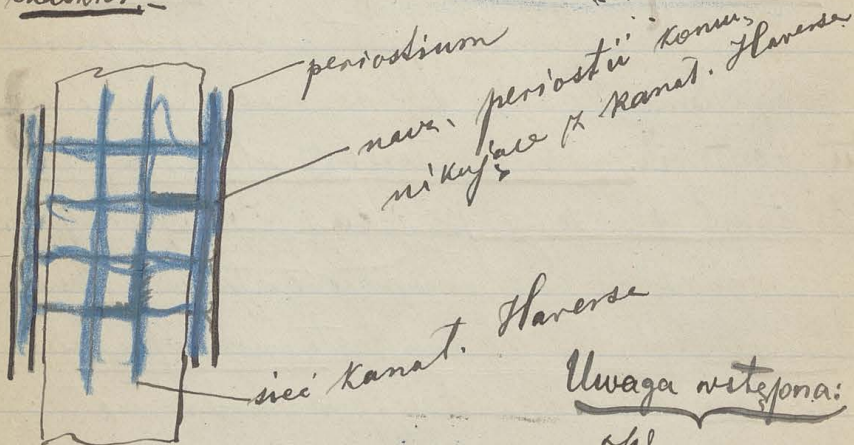 periostium
nacz. periostii komu,
nikujące z kanał. Haversa
sieć kanał. Haversa
Uwaga wstępna: